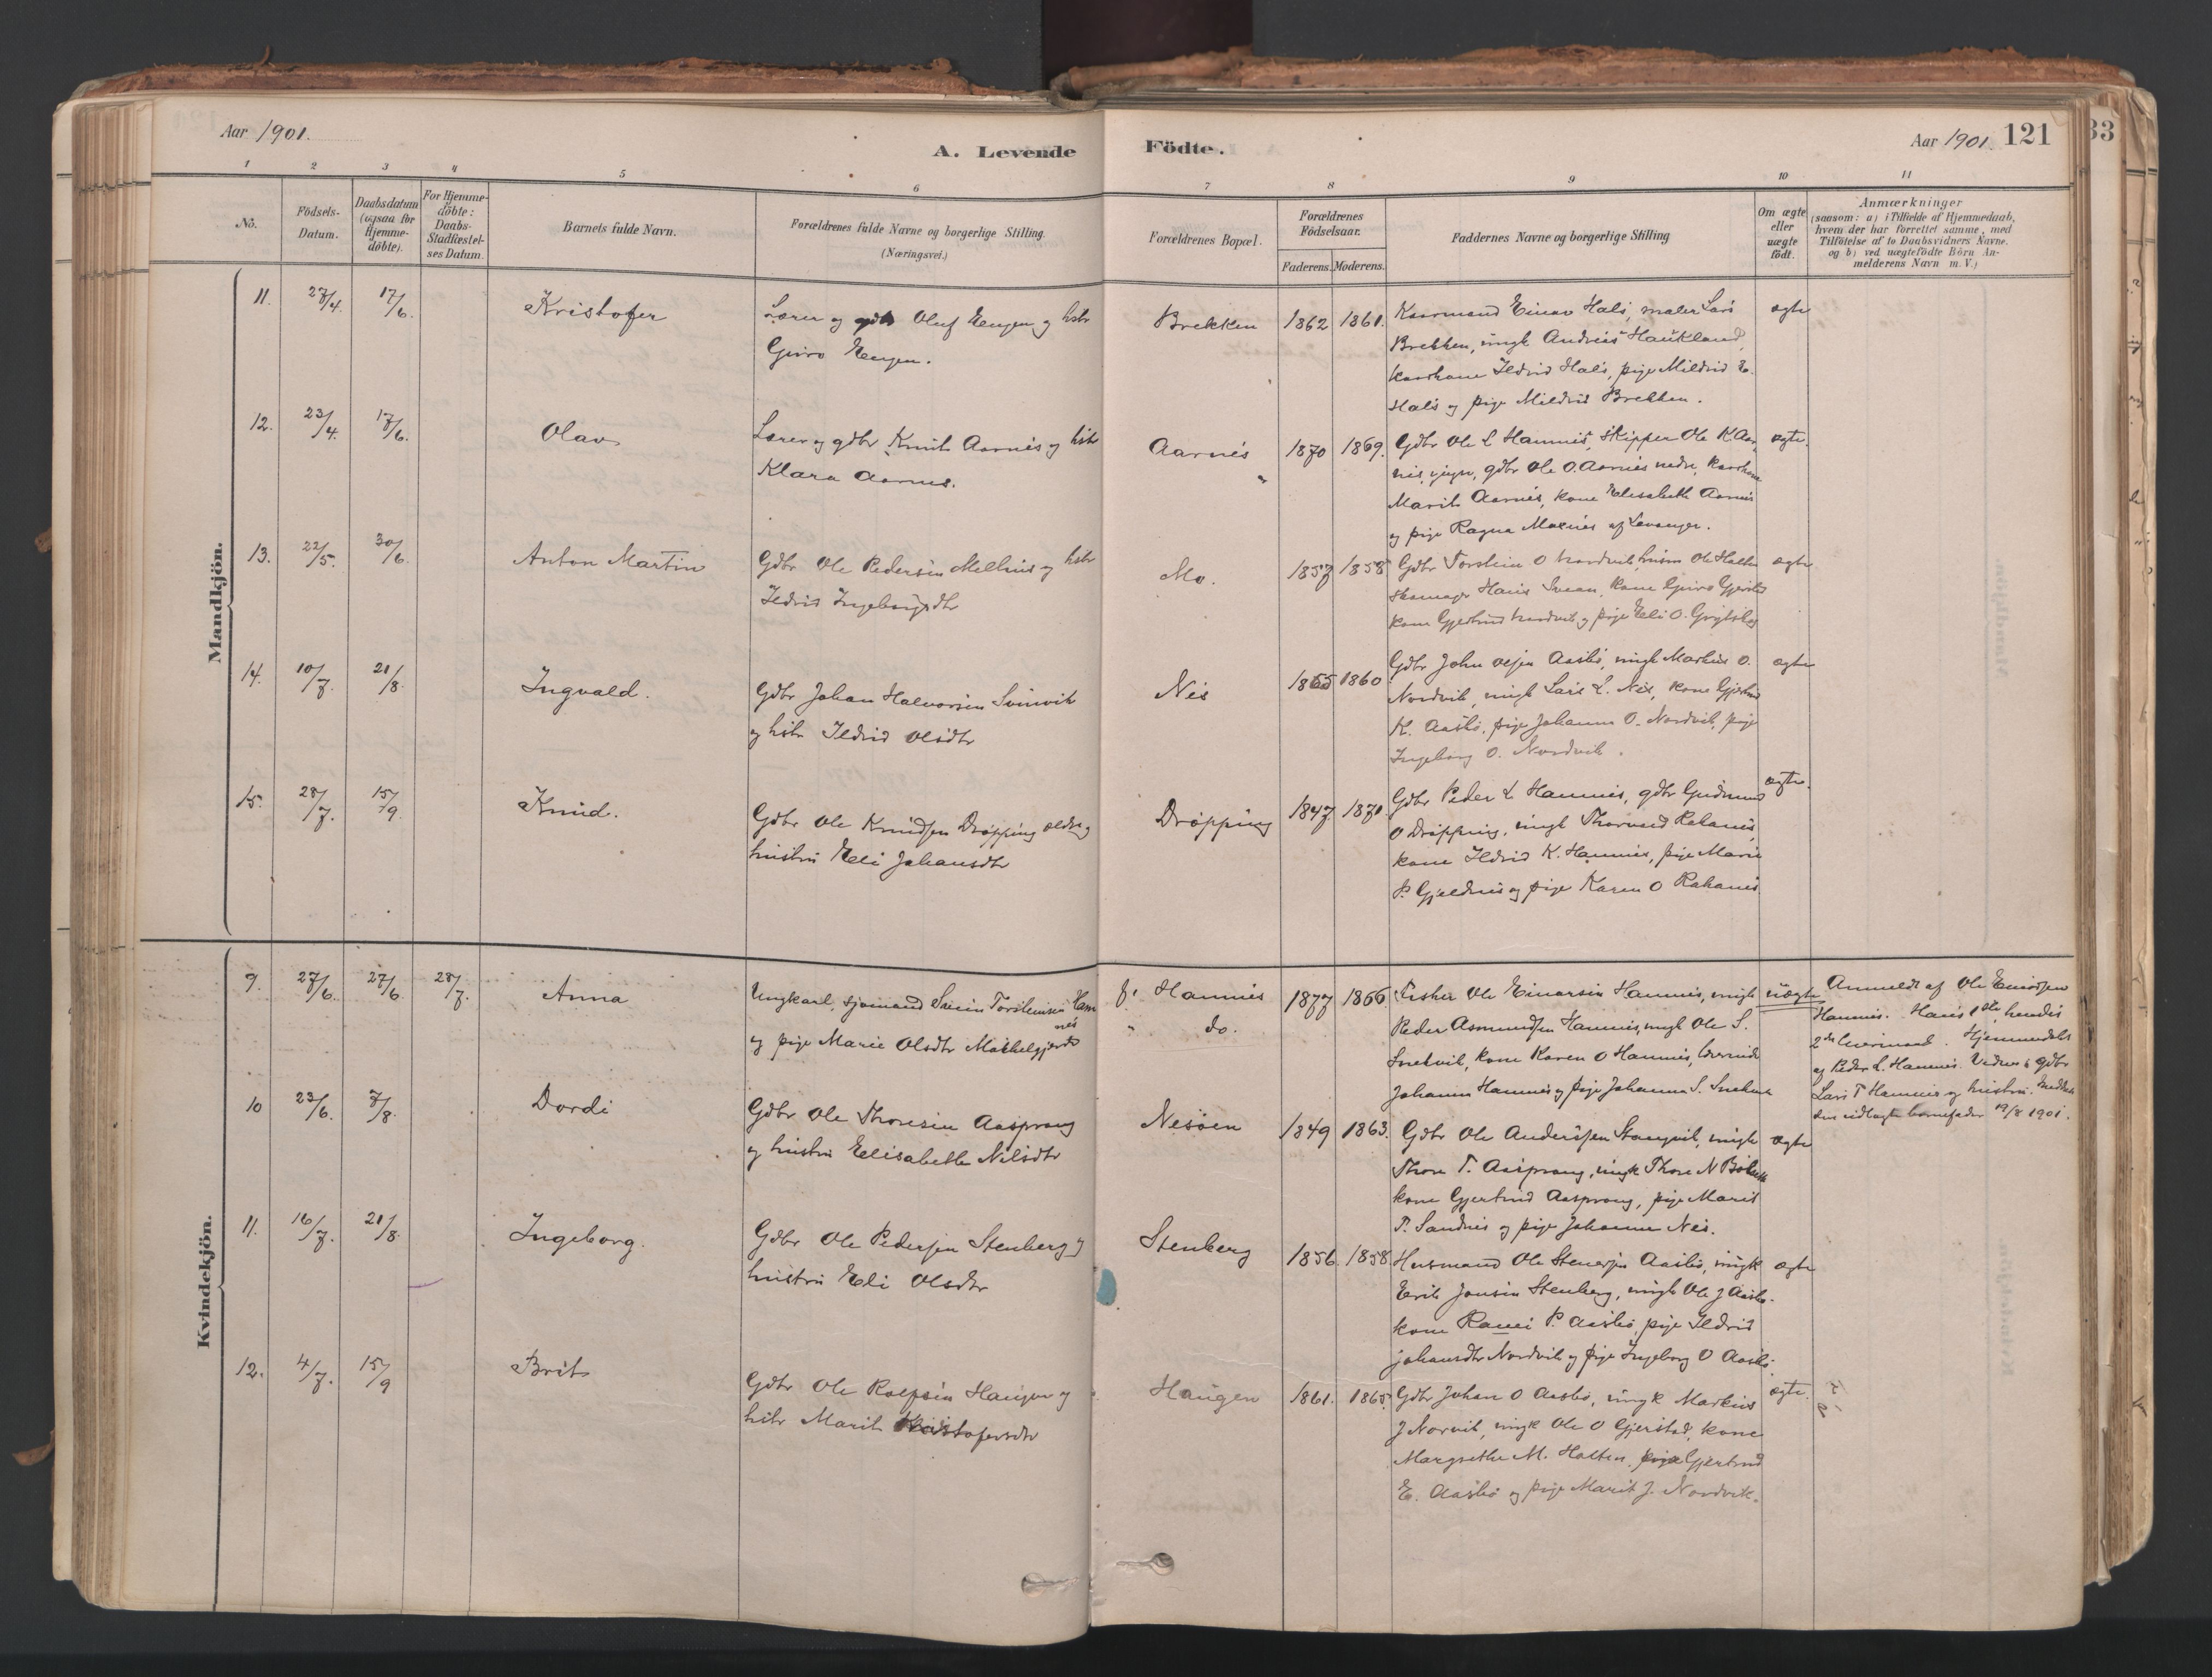 Aar 1901.
A. Levende Födte.
Aar 1901. 121
33
1 2 3 4 5 6 7 8 9 10 11
No.
Födsels-
Datum.
Daabsdatum
(ogsaa for
Hjemme-
döbte).
For Hjemme-
döbte:
Daabs-
Stadfæstel-
ses Datum.
Barnets fulde Navn.
Forældrenes fulde Navne og borgerlige Stilling.
(Næringsvei.)
Forældrenes Bopæl.
Forældrenes
Födselsaar.
Faderens. Moderens.
Faddernes Navne og borgerlige Stilling
Om ægte
eller
uægte
födt.
Anmærkninger
(saasom: a) i Tilfælde af Hjemmedaab,
hvem der har forrettet samme, med
Tilföielse af to Daabsvidners Navne.
og b) ved uægtefödte Börn An-
melderens Navn m. V.)
Mandkjön.
11. 27/4. 17/6. Kristofer
Lærer og gdbr Oluf Engen og hstr
Guro Engen.
Brekken 1862 1861.
Kaarmand Einar Hals, maler Lars
Brekken, ungk Andreis Haukland,
kaarkone Ildrid Hals, pige Mildrid E.
Hals og pige Mildrid Brekken.
ægte
12. 23/4. 17/6. Olav
Lærer og gdbr Knut Aarnes og hstr
Klara Aarnes.
Aarnes 1870 1869.
Gdbr Ole L Hamnes, skipper Ole K Aar
nes, gdbr Ole O. Aarnes nedre, kaarkone
Marit Aarnes, kone Elisabeth Aarnes
og pige Ragna Moxnes af Levanger.
ægte.
13. 22/5. 30/6. Anton Martin
Gdbr Ole Pedersen Melhus og hstr
Ildrid Ingebrigtsdtr
Mo. 1857 1858
Gdbr Torstein O Nordvik, husm Ole Holten
skomager Hans Svean, kone Guro Gjersted
kone Gjertrud Nordvik og pige Eli O.
ægte
14. 10/7. 21/8. Ingvald.
Gdbr Johan Halvorsen Svinvik
og hstr Ildrid Olsdtr
Nes 1865 1860
Gdbr John Olsen Aasbø, ungk Markus O.
Nordvik, ungk Lars L. Nes, kone Gjertrud
K. Aasbø, pige Johanna O. Nordvik, pige
Ingeborg O. Nordvik.
ægte
15. 28/7. 15/9. Knud.
Gdbr Ole Knudsen Drøpping ældre og
hustru Eli Johansdtr
Drøpping 1847 1870.
Gdbr Peder L Hamnes, gdbr Gudmund
O Drøpping, ungk Thorvald Rakanes,
kone Ildrid K. Hamnes, pige Marie
P. Gjeldnes og pige Karen O Rakanes.
ægte.
Kvindekjön.
9. 27/6. 27/6. 28/7. Anna
Ungkarl, sjømand Svein Torsteinsen Ham
nes
og pige Marie Olsdtr Mækelgjerdet
f. Hamnes
" do.
1877 1866
Fisker Ole Einarsen Hamnes, ungk
Peder Asmundsen Hamnes, ungk Ole S.
Snekvik, kone Karen O Hamnes, lærerinde
Johanna Hamnes og pige Johanna S. Snekvik
uægte
Anmeldt af Ole Einarsen
Hamnes. Hans 1ste, hendes
2det leiermaal. Hjemmedøbt
af Peder L. Hamnes. Vidner: gdbr
Lars T Hamnes og hustru.
den udlagte barnefader 19/8 1901.
10 23/6. 7/8. Dordi
Gdbr Ole Thoresen Aasprong
og hustru Elisabeth Nilsdtr
Nesøen 1849 1863.
Gdbr Ole Anderssen Stangvik, ungk
Thore T. Aasprong, ungk Thore N
kone Gjertrud Aasprong, pige Marit
T. Sandnes og pige Johanna Nes.
ægte
11. 16/7. 21/8. Ingeborg.
Gdbr Ole Pedersen Stenberg og
hustru Eli Olsdtr
Stenberg 1856. 1858.
Husmand Ole Stenersen Aasbø, ungk
Erik Jonsen Stenberg, ungk Ole J Aasbø.
kone Ranei P. Aasbø, pige Ildrid
Johansdtr Nordvik og pige Ingeborg O Aasbø.
ægte
12. 4/7. 15/9 Brit
Gdbr Ole Rolfsen Haugen og
hstr Marit Kristofersdtr
Haugen 1861. 1865.
Gdbr Johan O Aasbø, ungk Markus
J Norvik, ungk Ole O Gjerstad, kone
Margrethe M. Holten, pige Gjertrud
E. Aasbø og pige Marit J. Nordvik.
ægte.